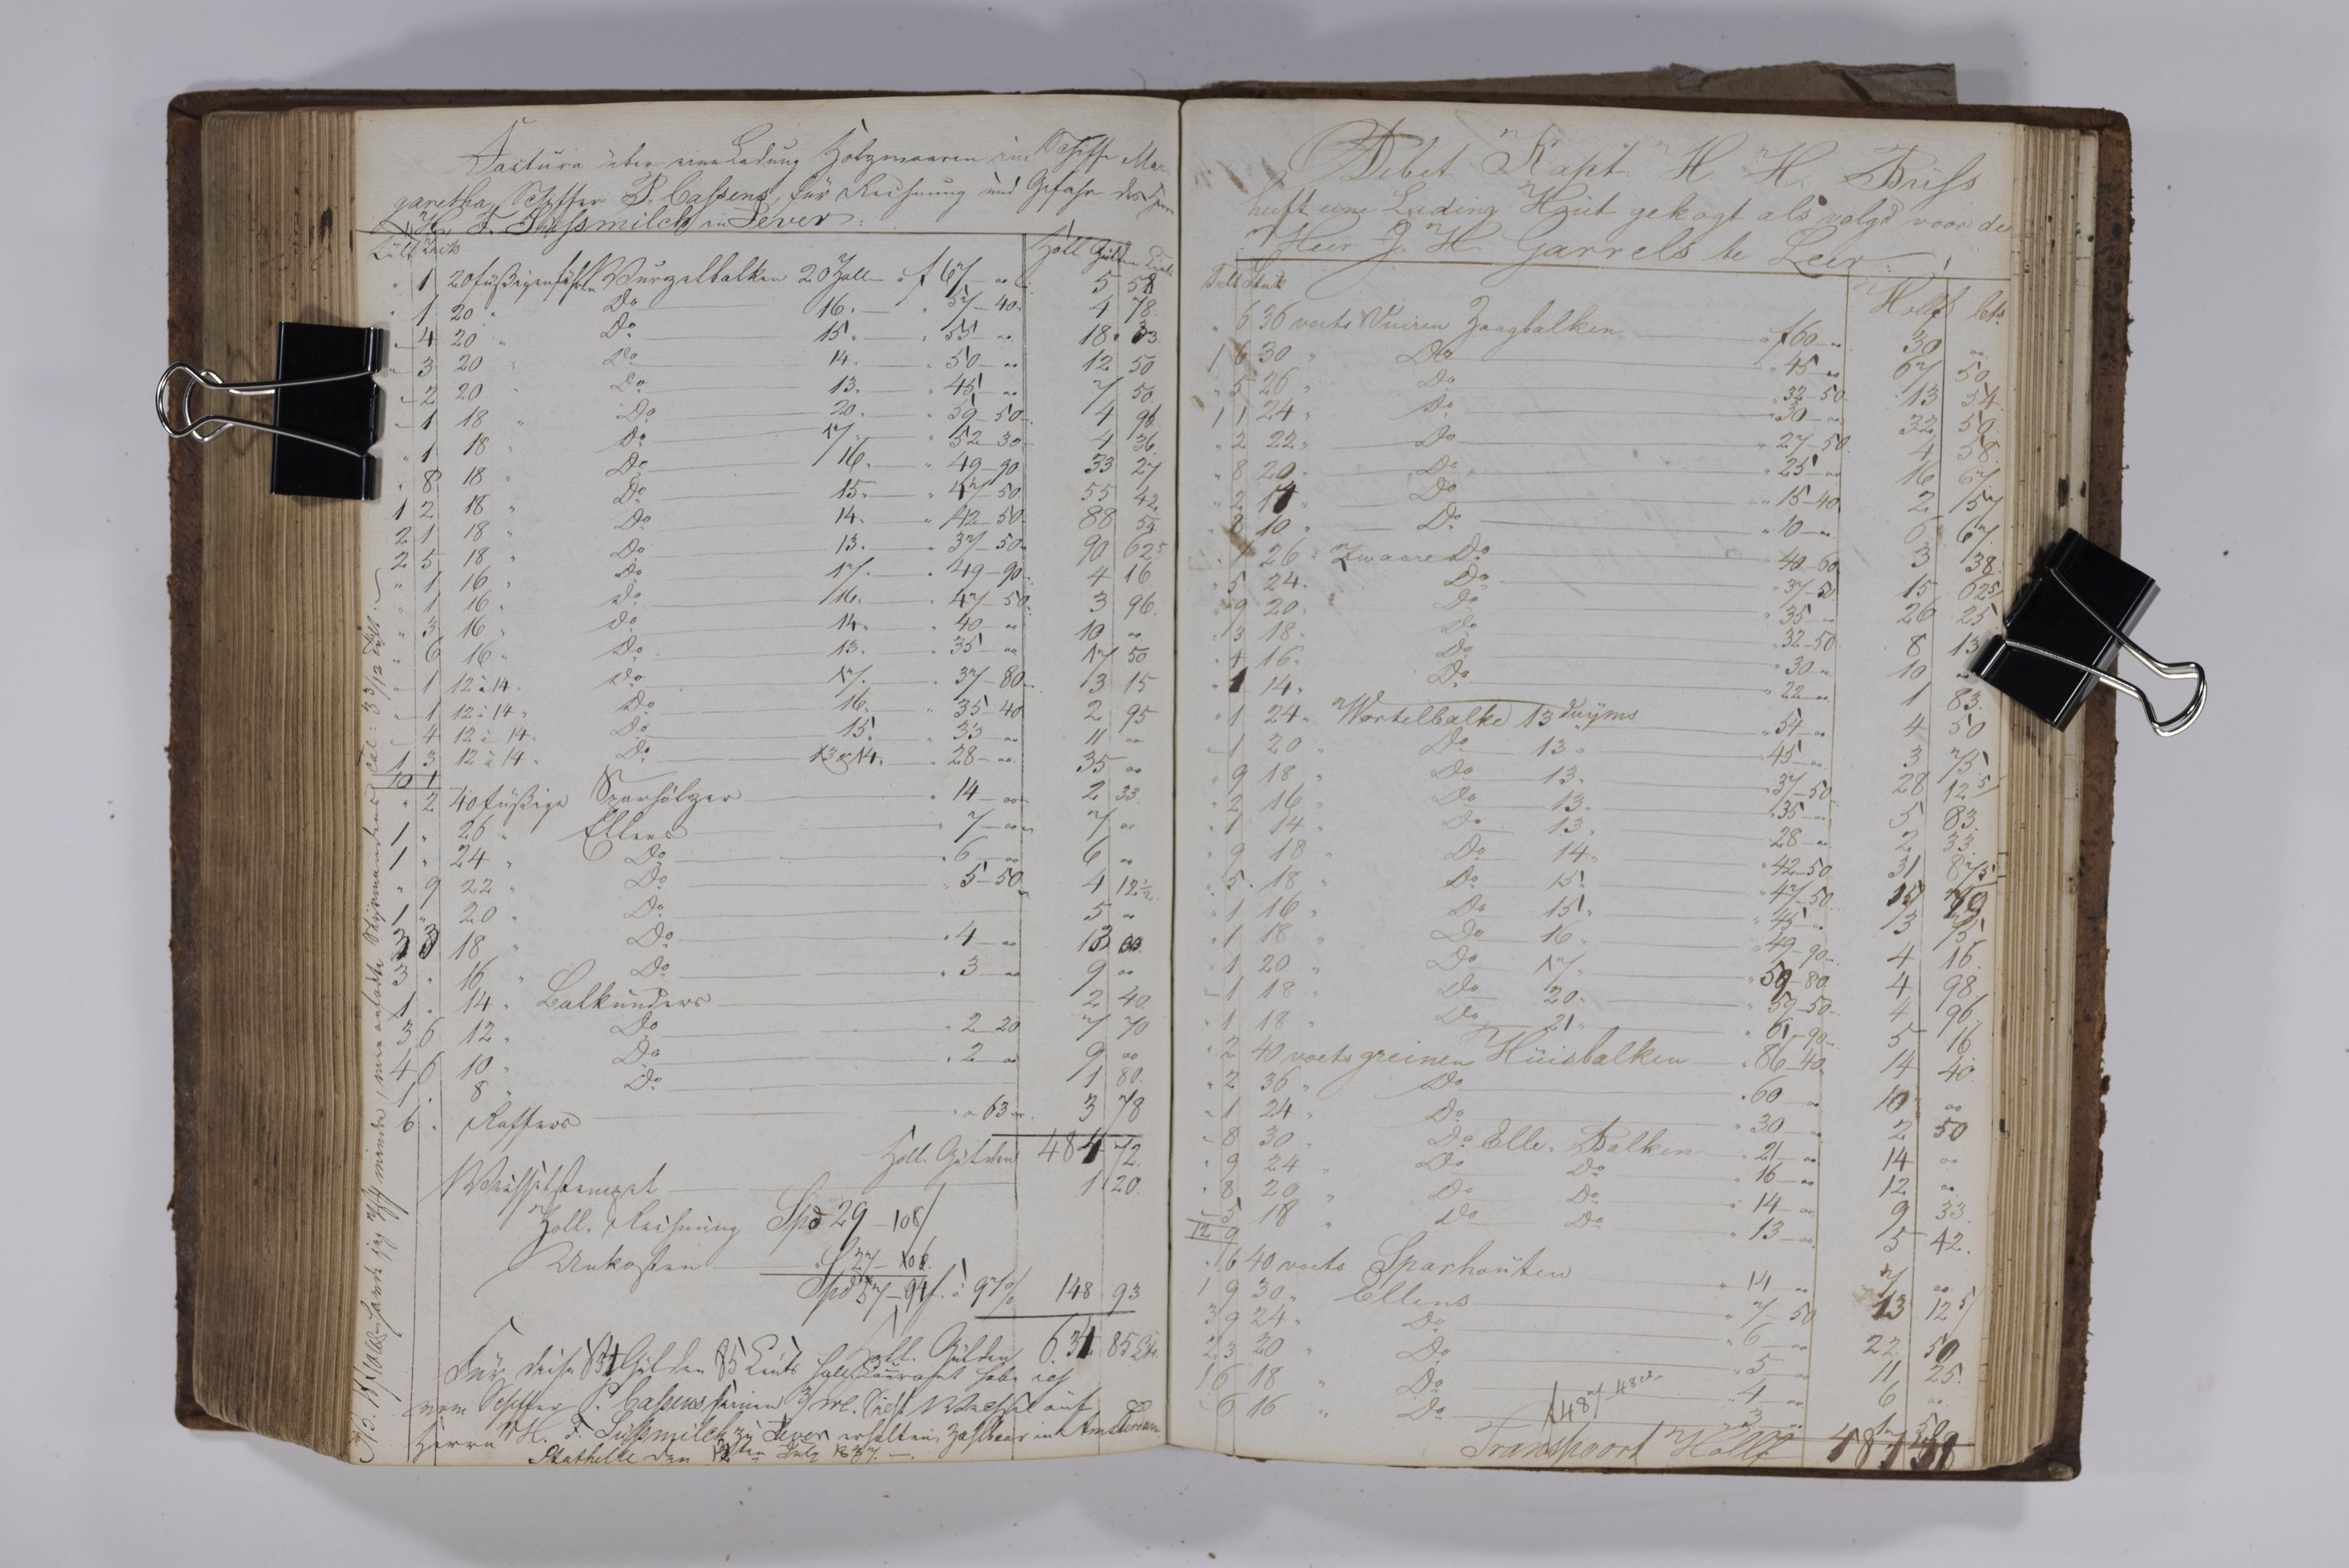 Factura über eine Ladung Holzwaaren im Schiffe Mar-
garetha, Schiffer P. Cassens, für Rechnung und Gefahr des Herrn
H. F. Süssmilch in Jever:
Tült Stck Holl Gulden Cents
" 1 20 füßigen föhrn Wurzelbalken 20 Zoll " f 67 - " 5 58
" 1 20 " Do 16 " " 57-40 4 78
" 4 20 " Do 15 " " 55 - " 18 33
" 3 20 " Do 14 " " 50 - " 12 50
" 2 20 " Do 13 " " 45 - " 7 50
" 1 18 " Do 20 " " 59-50 4 96
" 1 18 " Do 17 " " 52-30 4 36
" 8 18 " Do 16 " " 49-90 33 27
1 2 18 " Do 15 " " 47-50 55 42
2 1 18 " Do 14 " " 42-50 88 54
2 5 18 " Do 13 " " 37-50 90 62 5
" 1 16 " Do 17 " " 49-90 4 16
" 1 16 " Do 16 " " 47-50 3 96
" 3 16 " Do 14 " " 40 - " 10 "
" 6 16 " Do 13 " " 35 - " 17 50
" 1 12 à 14 " Do 17 " " 37-80 3 15
" 1 12 à 14 " Do 16 " " 35-40 2 95
" 4 12 à 14 " Do 15 " " 33 - " 11 "
1 3 12 à 14 " Do 13 & 14 " " 28 - " 35 "
10 1
" 2 40 füßige Sparhölzer " 14 - " 2 33
1 " 26 " Ellens " 7 - " 7 "
1 " 24 " Do " 6 - " 6 "
" 9 22 " Do " 5-50 4 12½
1 " 20 " Do 5 "
3 3 18 " Do " 4 - " 13 "
3 " 16 " Do " 3 - " 9 "
1 " 14 " Balkunders 2 40
3 6 12 " Do " 2-20 7 70
4 6 10 " Do " 2 - " 9 "
1 " 8 " Do 1 80
6 " Raffters " " 63 " 3 78
Holl. Gulden 484 72
Wechselstempel 1 20
Zoll. Rechnung Spd 29-108
Unkosten " 27-106
Spd 57-94 f. à 97% 148 93
Holl. Gulden 634 85 Cts
Für diese 634 Gulden 85 Cents holl. Courant habe ich
vom Schiffer P. Cassens seinen 3 Mt. Sicht Wechsel auf
Herrn H. F. Süssmilch zu Jever erhalten, Zahlbar in Amsterdam
Stathelle den 12ten July 1837.
Debet Kapt. H. H. Büss
heeft eene Lading Hout gekogt als volgd voor de
Heer J. H. Garrels te Leer
Tult Stuk Hollf Cts
" 6 36 voets Vuiren Zaagbalken " f 60 - " 30 "
1 6 30 " Do " 45 - " 67 50
" 5 26 " Do " 32-50 13 54
1 1 24 " Do " 30 - " 32 50
" 2 22 " Do " 27-50 4 58
" 8 20 " Do " 25 - " 16 67
" 2 17 " Do " 15-40 2 57
" 8 10 " Do " 10 - " 6 67
" 1 26 " Zwaare Do " 40-60 3 38
" 5 24 " Do " 37-50 15 62 5
" 9 20 " Do " 35 - " 26 25
" 3 18 " Do " 32-50 8 13
" 4 16 " Do " 30 - " 10 "
" 1 14 " Do " 22 - " 1 83
" 1 24 " Wortelbalke 13 duyms " 54 - " 4 50
" 1 20 " Do 13 " " 45 - " 3 75
" 9 18 " Do 13 " " 37-50 28 12 5
" 2 16 " Do 13 " " 35 - " 5 83
" 1 14 " Do 13 " " 28 - " 2 33
" 9 18 " Do 14 " " 42-50 31 87 5
" 5 18 " Do 15 " " 47-50 19 79
" 1 16 " Do 15 " " 45 - " 3 75
" 1 18 " Do 16 " " 49-90 4 16
" 1 20 " Do 17 " " 59-80 4 98
" 1 18 " Do 20 " " 59-50 4 96
" 1 18 " Do 21 " " 61-90 5 16
" 2 40 voets greinen Huisbalken " 86-40 14 40
" 2 36 " Do " 60 - " 10 "
" 1 24 " Do " 30 - " 2 50
" 8 30 " Do Elle. Balken " 21 - " 14 "
" 9 24 " Do Do " 16 - " 12 "
" 8 20 " Do Do " 14 - " 9 33
" 5 18 " Do Do " 13 - " 5 42
12 9
" 6 40 voets Sparhouten " 14 - " 7 "
1 9 30 " Ellens " 7 50 13 12 5
3 9 24 " Do " 6 - " 22 50
2 3 20 " Do " 5 - " 11 25
1 6 18 " Do " 4 - " 6 "
" 6 16 " Do " 3 - " 1 50
Transpoort Hollf